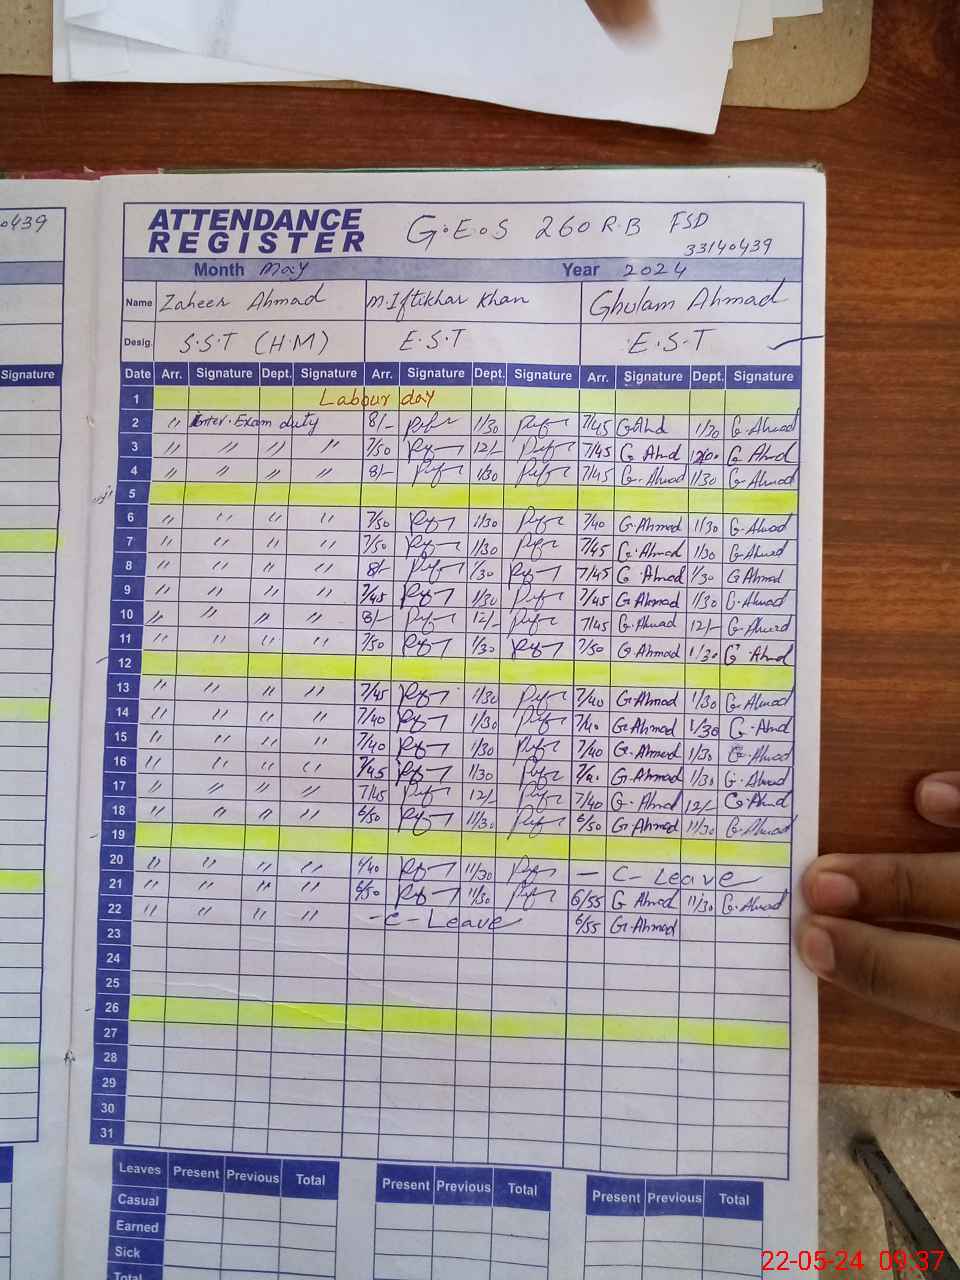 0439
ATTENDANCE REGISTER G.E.S 260 R.B FSD
33140439
Month May Year 2024
Name Zaheer Ahmad M.Iftikhar Khan Ghulam Ahmad
Desig. S.S.T (H.M) E.S.T E.S.T
Signature
Date Arr. Signature Dept. Signature Arr. Signature Dept. Signature Arr. Signature Dept. Signature
1 Labour day
2 〃 Inter. Exam duty 8/- 1/30 7/45 G Ahd 1/30 G. Ahmad
3 〃 〃 〃 〃 7/50 12/- 7/45 G Ahd G Ahd
4 〃 〃 〃 〃 8/- 1/30 7/45 G. Ahmad 1/30 G. Ahmad
5
6 〃 〃 〃 〃 7/50 1/30 7/40 G.Ahmad 1/30 G.Ahmad
7 〃 〃 〃 〃 7/50 1/30 7/45 G.Ahmad 1/30 G.Ahmad
8 〃 〃 〃 〃 8/- 1/30 7/45 G.Ahmad 1/30 G Ahmad
9 〃 〃 〃 〃 7/45 1/30 7/45 G.Ahmad 1/30 G.Ahmad
10 〃 〃 〃 〃 8/- 12/- 7/45 G.Ahmad 12/- G.Ahmad
11 〃 〃 〃 〃 7/50 1/30 7/50 G.Ahmad 1/30 G. Ahmd
12
13 〃 〃 〃 〃 7/45 1/30 7/40 G.Ahmad 1/30 G.Ahmad
14 〃 〃 〃 〃 7/40 1/30 7/40 G.Ahmad 1/30 G.Ahd
15 〃 〃 〃 〃 7/40 1/30 7/40 G.Ahmad 1/30 G.Ahmad
16 〃 〃 〃 〃 7/45 1/30 G.Ahmad 1/30 G.Ahmad
17 〃 〃 〃 〃 7/45 12/- 7/40 G.Ahmad 12/- G.Ahmd
18 〃 〃 〃 〃 6/50 11/30 6/50 G.Ahmad 11/30 G.Ahmad
19
20 〃 〃 〃 〃 6/40 11/30 - C- Leave
21 〃 〃 〃 〃 6/50 11/30 6/55 G Ahmad 11/30 G.Ahmad
22 〃 〃 〃 〃 - C- Leave 6/55 G.Ahmad
23
24
25
26
27
28
29
30
31
Leaves Present Previous Total Present Previous Total Present Previous Total
Casual
Earned
Sick
Total
22-05-24 09:37